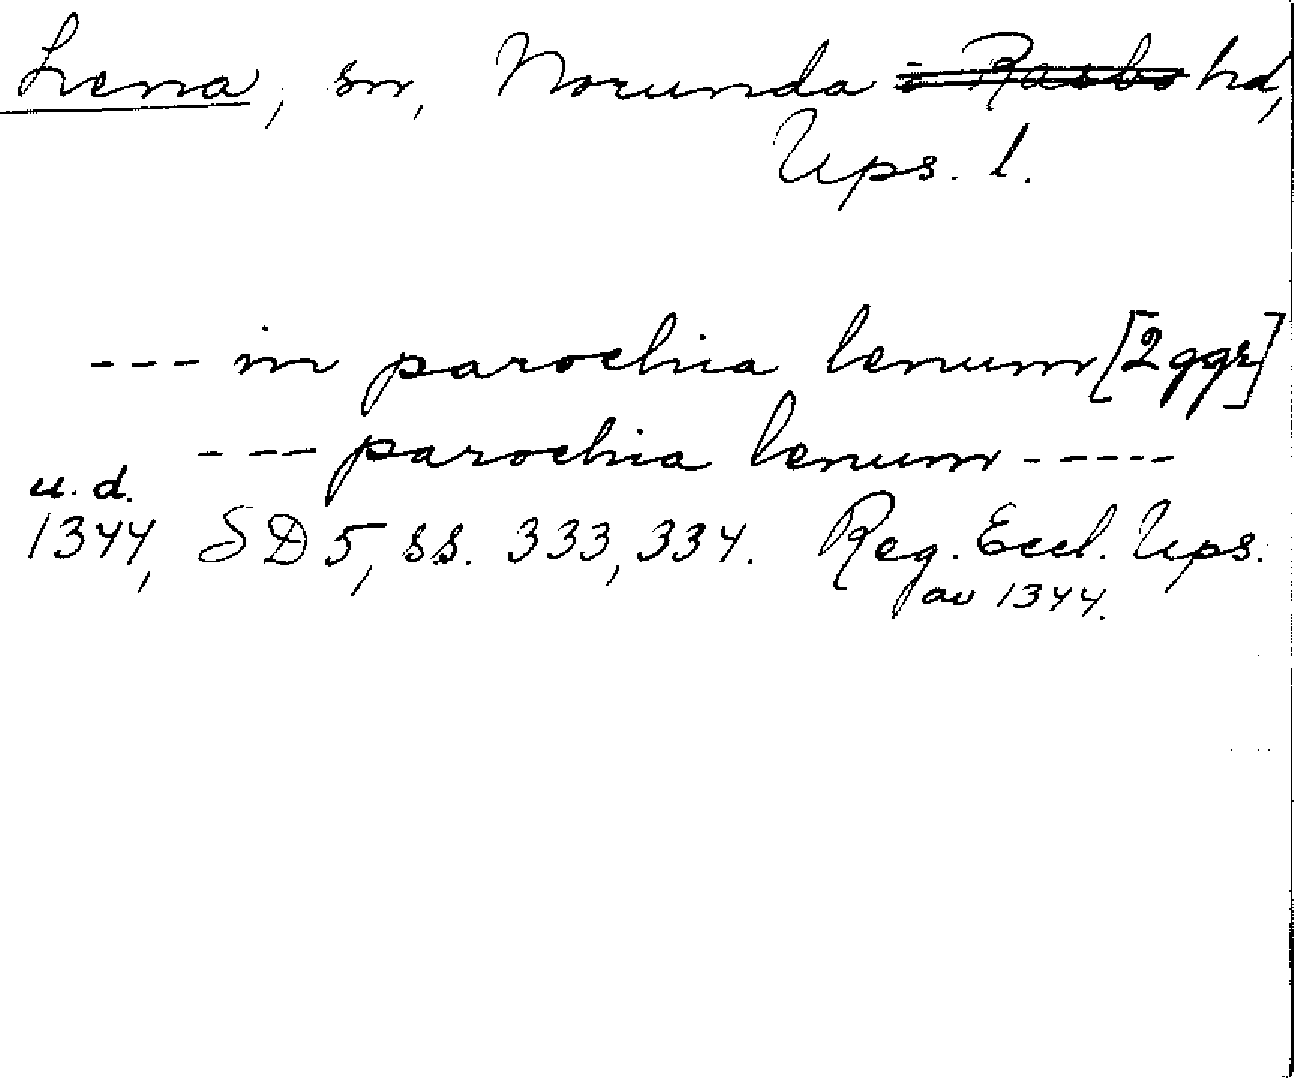 Lena, sn, Norunda o Rasbo hd,
Ups. l.
--- in parochia lenum [2 ggr]
--- parochia lenum -----
u. d.
1344, SD 5, ss. 333, 334. Reg. Eccl. Ups.
av 1344.